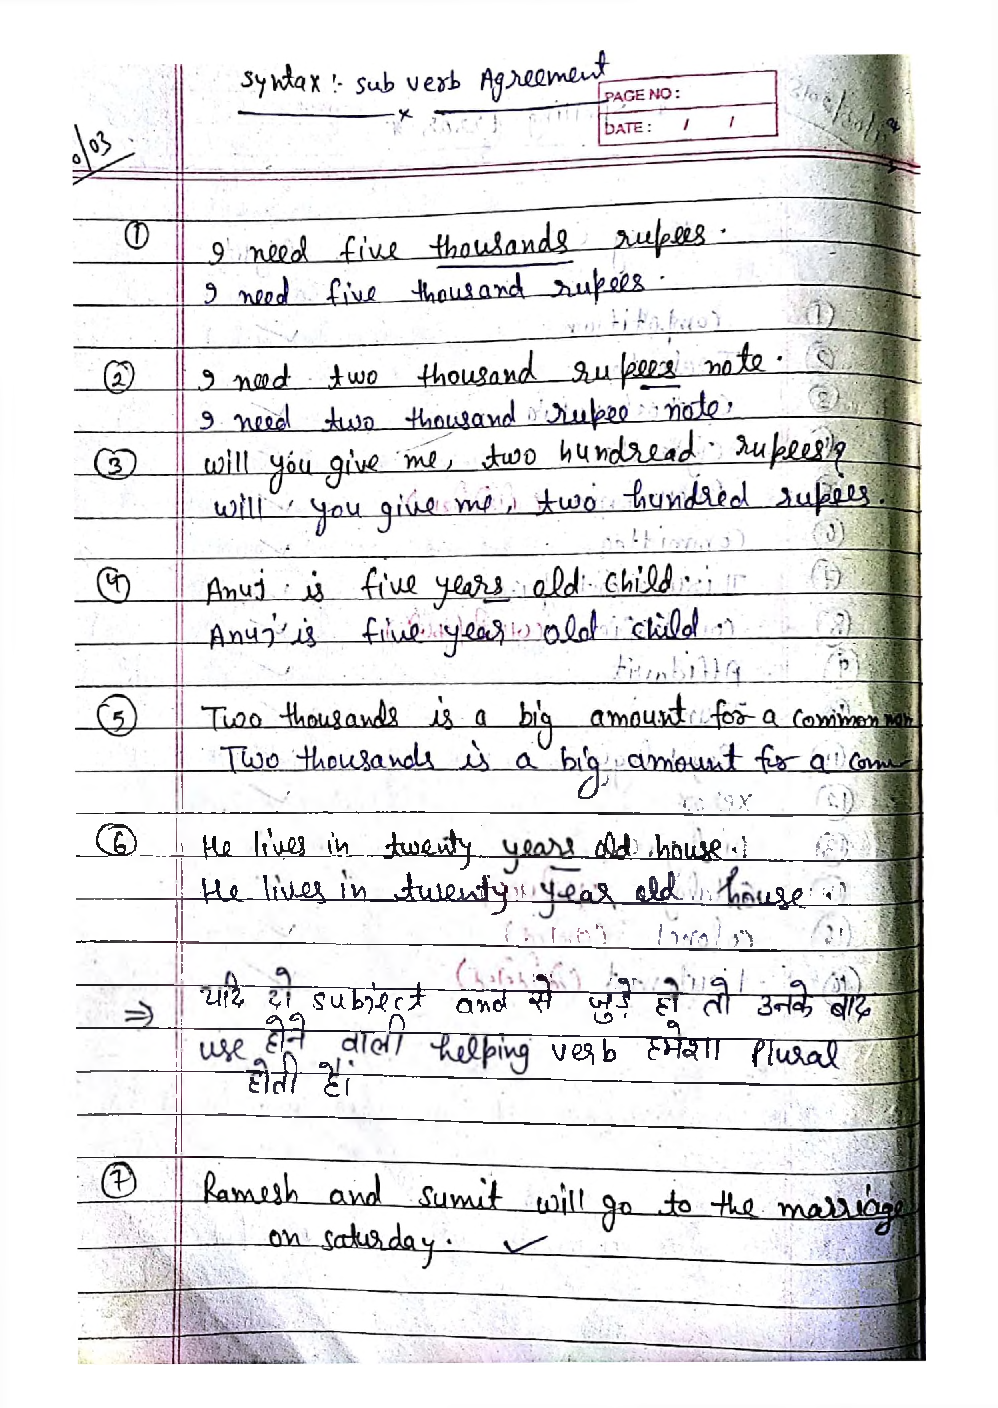 Syntax :- sub verb Agreement
PAGE NO:
DATE: / /
0/03
① I need five thousands rupees.
I need five thousand rupees.
② I need two thousand rupees note.
I need two thousand rupee note.
③ will you give me, two hundread rupees?
will you give me, two hundred rupees.
④ Anuj is five years old child.
Anuj is five year old child.
⑤ Two thousands is a big amount for a common man
Two thousands is a big amount for a com
⑥ He lives in twenty years old house.
He lives in twenty year old house.
⇒ यदि दो subject and से जुड़े हो तो उनके बाद
use होने वाली helping verb हमेशा Plural
होती है।
⑦ Ramesh and Sumit will go to the marriage
on saturday. ✓